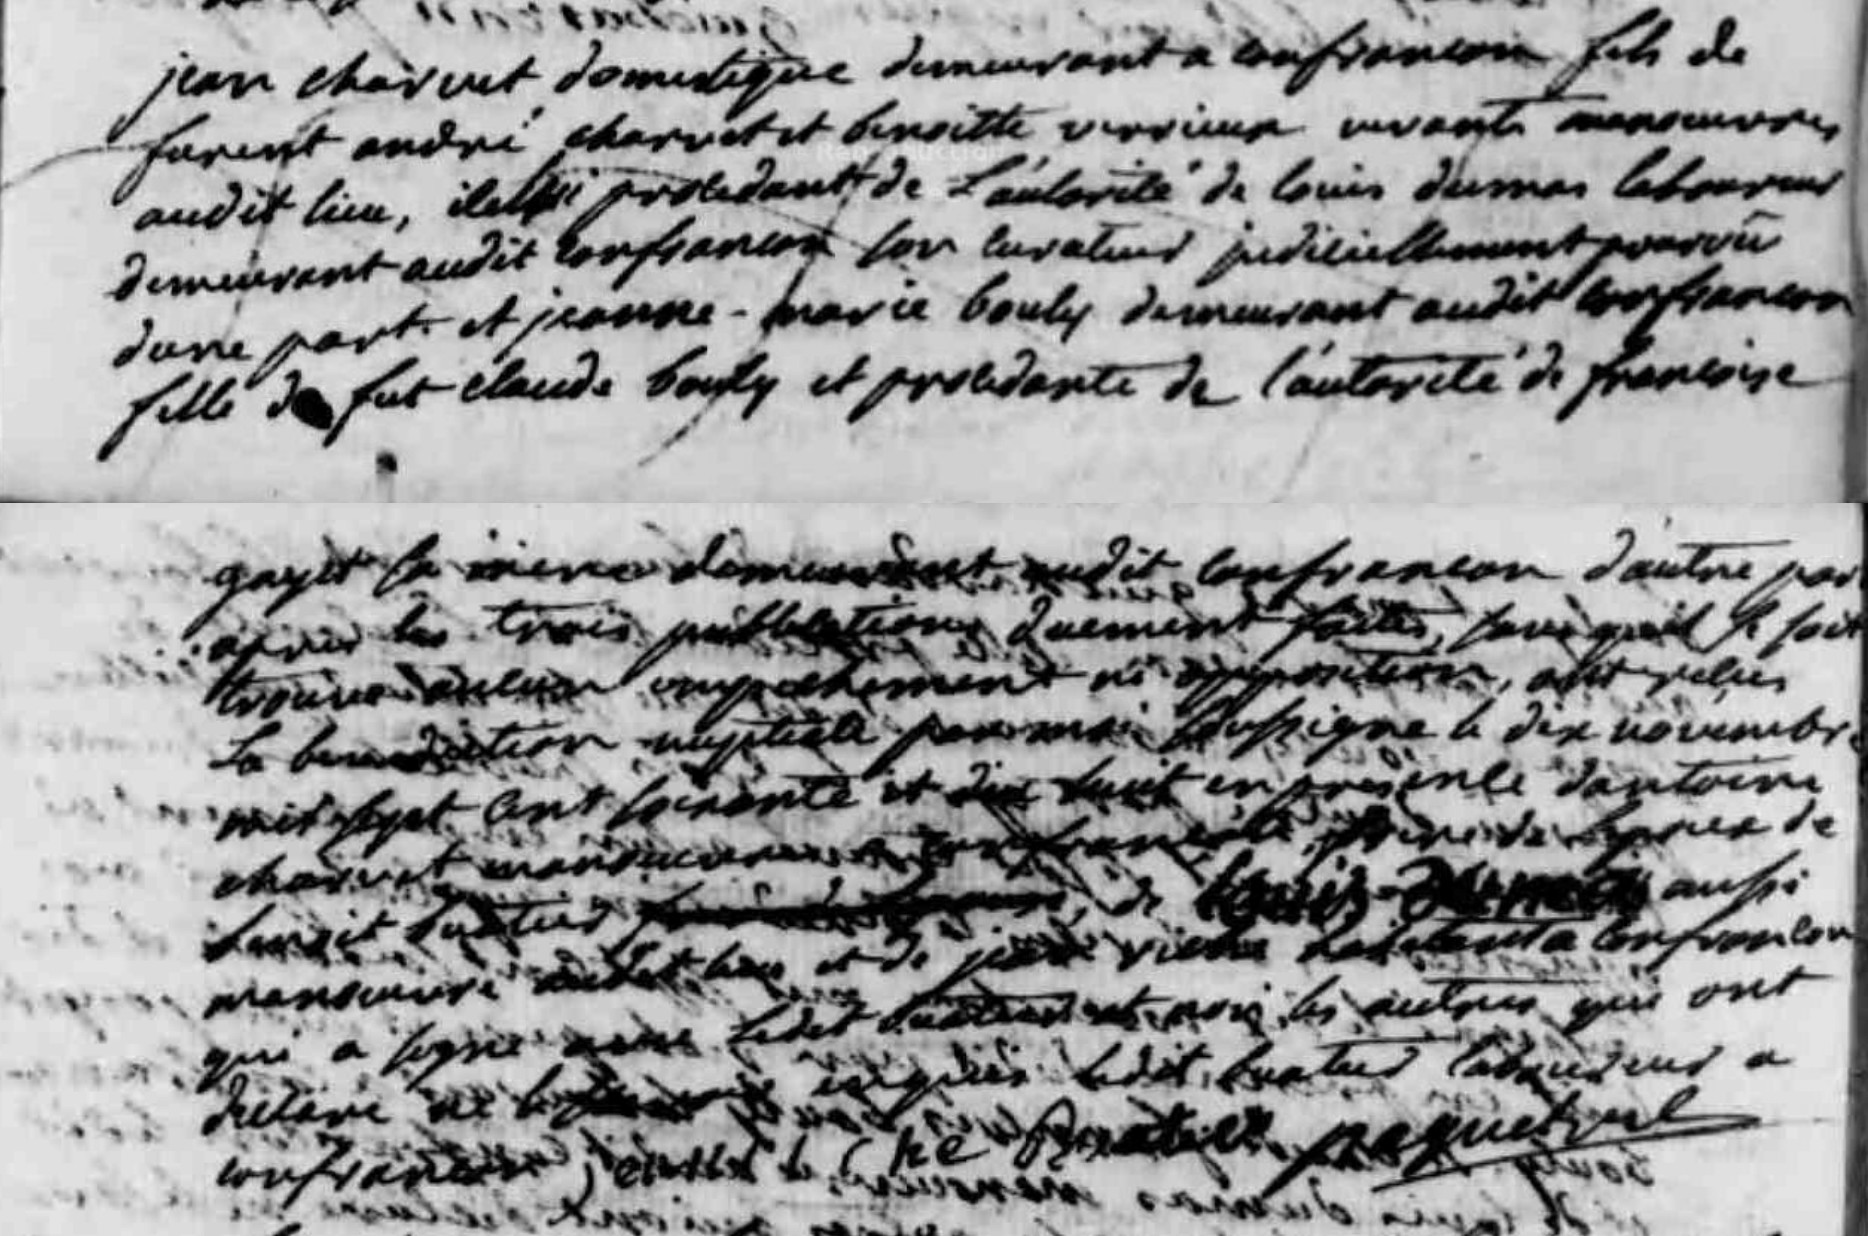 jean charvet domestique demeurant a confrancon fils de
furent andré charvet et benoitte verrieux vivants manoeuvres
audit lieu, procédant de L'autorité de louis dumas laboureur
demeurant audit confrancon son curateur judiciellement pourvû
dune part. et jeanne-marie bouly demeurant audit confrancon
fille de fut claude bouly et procédante de l'autorité de francoise
gayet sa mere demeurant audit confrancon d'autre par
apres les trois publications duement faites, sans quil se soit
trouvé aucun empechement ni opposition, ont reçus
la benediction nuptiale par moi soussigne le dix novembre
mil sept cent soixante et dix huit en présence dantoine
charvet manoeuvre a confrancon, frere de lepoux de
benoit buatier de aussi
manoeuvre audit lieu et de habitant a confrancon
qui a signé avec ledit buatier et non les autres qui ont
declaré ne enquis ledit buatier laboureur a
confrancon
paquet curé